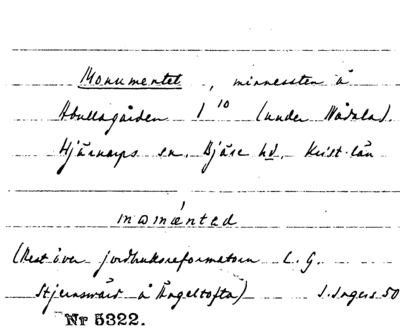 Monumentet, minnessten å
Abullagården 1¹⁰ (under Vådalen).
Hjärnarps sn, Bjäre hd, Krist. län
(Rest över jordbruksreformatorn C. G.
Stjernswärd å Ängeltofta) I. Ingers 50
Nr 5322.